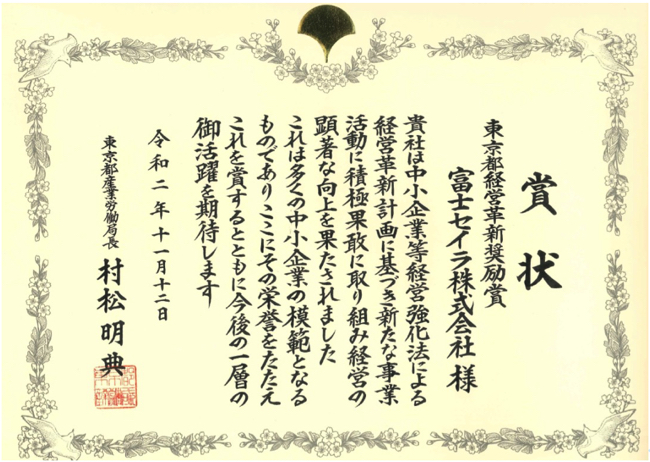 賞状
東京都経営革新奨励賞
富士セイラ株式会社 様
貴社は中小企業等経営強化法による
経営革新計画に基づき新たな事業
活動に積極果敢に取り組み経営の
顕著な向上を果たされました
これは多くの中小企業の模範となる
ものでありここにその栄誉をたたえ
これを賞するとともに今後の一層の
御活躍を期待します
令和二年十一月十二日
東京都産業労働局長
村松明典